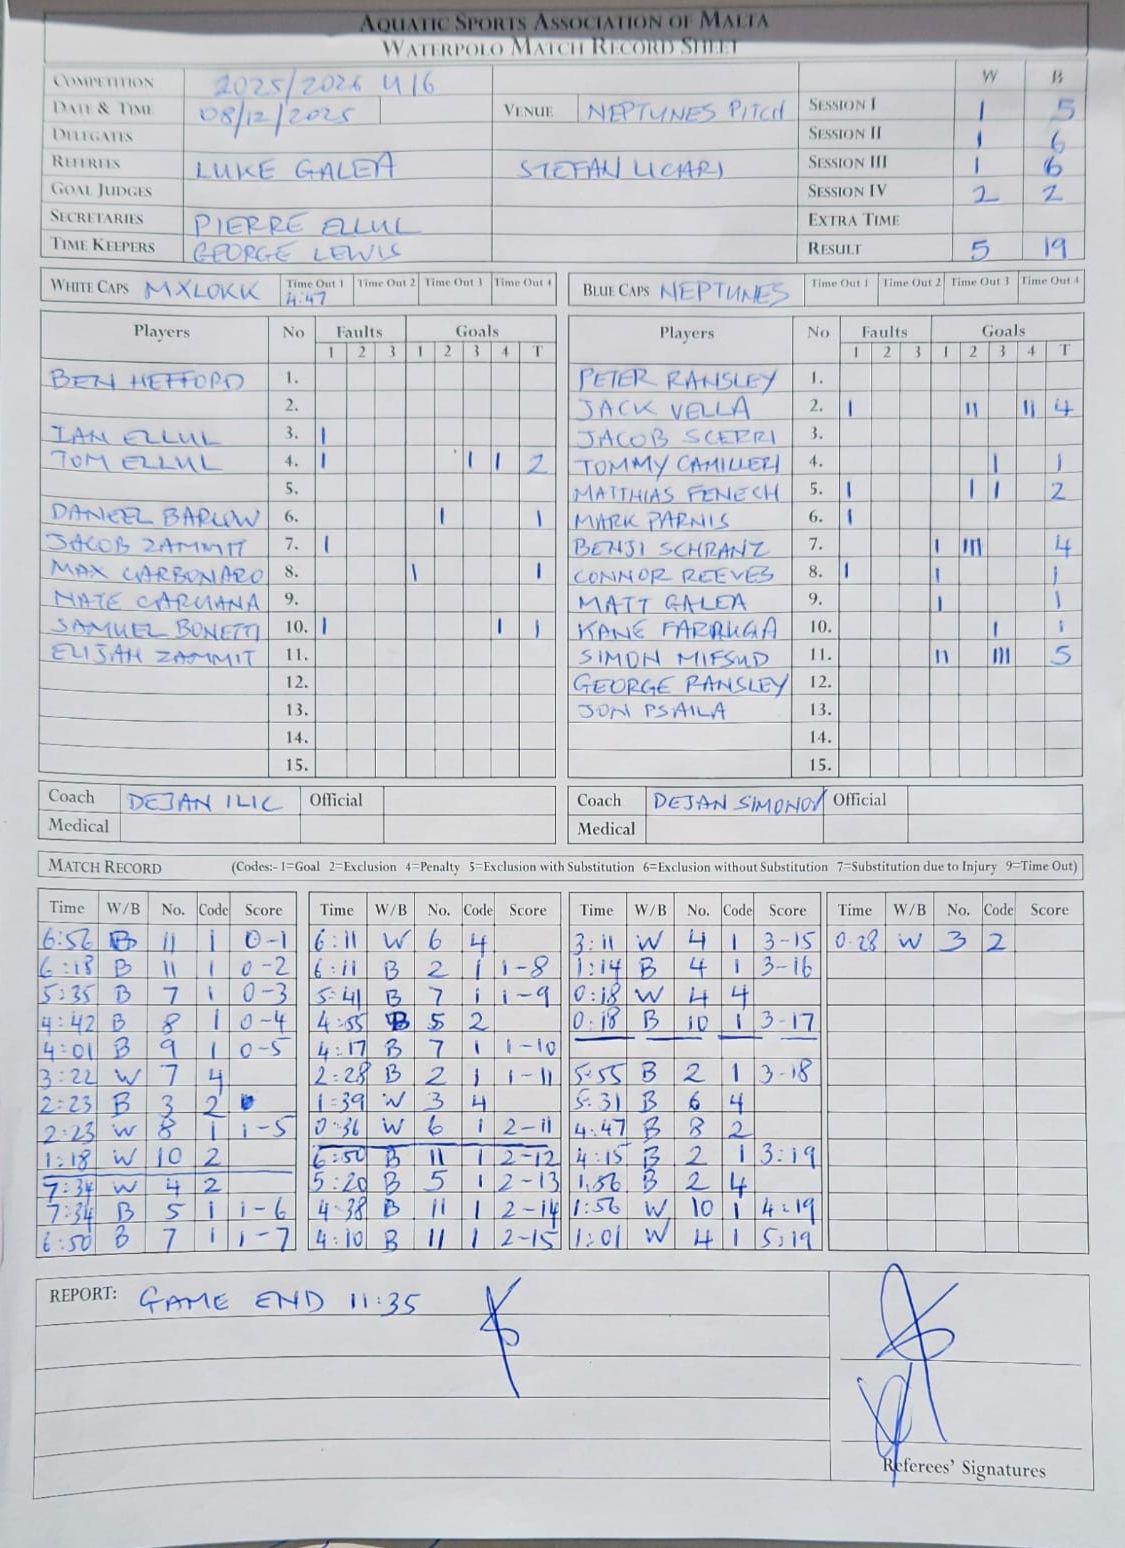 AQUATIC SPORTS ASSOCIATION OF MALTA
WATERPOLO MATCH RECORD SHEET
COMPETITION 2025/2026 U16 W B
DATE & TIME 08/12/2025 VENUE NEPTUNES PITCH SESSION I 1 5
DELEGATES SESSION II 1 6
REFEREES LUKE GALEA STEFAN LICARI SESSION III 1 6
GOAL JUDGES SESSION IV 2 2
SECRETARIES PIERRE ELLUL EXTRA TIME
TIME KEEPERS GEORGE LEWIS RESULT 5 19
WHITE CAPS MXLOKK Time Out 1 4:47 Time Out 2 Time Out 3 Time Out 4
Players No Faults Goals
1 2 3 1 2 3 4 T
BEN HEFFORD 1.
2.
IAN ELLUL 3. I
TOM ELLUL 4. I I I 2
5.
DANEEL BARLOW 6. I 1
JACOB ZAMMIT 7. I
MAX CARBONARO 8. I 1
NATE CARUANA 9.
SAMUEL BONETTI 10. I I 1
ELIJAH ZAMMIT 11.
12.
13.
14.
15.
Coach DEJAN ILIC Official
Medical
BLUE CAPS NEPTUNES Time Out 1 Time Out 2 Time Out 3 Time Out 4
Players No Faults Goals
1 2 3 1 2 3 4 T
PETER RANSLEY 1.
JACK VELLA 2. I II II 4
JACOB SCERRI 3.
TOMMY CAMILLERI 4. I 1
MATTHIAS FENECH 5. I I I 2
MARK PARNIS 6. I
BENJI SCHRANZ 7. I III 4
CONNOR REEVES 8. I I 1
MATT GALEA 9. I 1
KANE FARRUGA 10. I 1
SIMON MIFSUD 11. II III 5
GEORGE RANSLEY 12.
JON PSAILA 13.
14.
15.
Coach DEJAN SIMONOV Official
Medical
MATCH RECORD (Codes:- 1=Goal 2=Exclusion 4=Penalty 5=Exclusion with Substitution 6=Exclusion without Substitution 7=Substitution due to Injury 9=Time Out)
Time W/B No. Code Score
6:56 B 11 1 0-1
6:18 B 11 1 0-2
5:35 B 7 1 0-3
4:42 B 8 1 0-4
4:01 B 9 1 0-5
3:22 W 7 4
2:23 B 3 2
2:23 W 8 1 1-5
1:18 W 10 2
7:34 W 4 2
7:34 B 5 1 1-6
6:50 B 7 1 1-7
Time W/B No. Code Score
6:11 W 6 4
6:11 B 2 1 1-8
5:41 B 7 1 1-9
4:55 B 5 2
4:17 B 7 1 1-10
2:28 B 2 1 1-11
1:39 W 3 4
0:36 W 6 1 2-11
6:50 B 11 1 2-12
5:20 B 5 1 2-13
4:38 B 11 1 2-14
4:10 B 11 1 2-15
Time W/B No. Code Score
3:11 W 4 1 3-15
1:14 B 4 1 3-16
0:18 W 4 4
0:18 B 10 1 3-17
5:55 B 2 1 3-18
5:31 B 6 4
4:47 B 8 2
4:15 B 2 1 3:19
1:56 B 2 4
1:56 W 10 1 4:19
1:01 W 4 1 5:19
Time W/B No. Code Score
0:28 W 3 2
REPORT: GAME END 11:35
Referees' Signatures